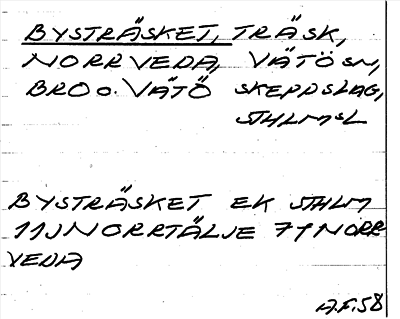 BYSTRÄSKET, TRÄSK,
NORRVEDA, VÄTÖ SN,
BRO O. VÄTÖ SKEPPSLAG,
STHLMSL
BYSTRÄSKET EK STHLM
11J NORRTÄLJE 71 NORR
VEDA
A.F. 58